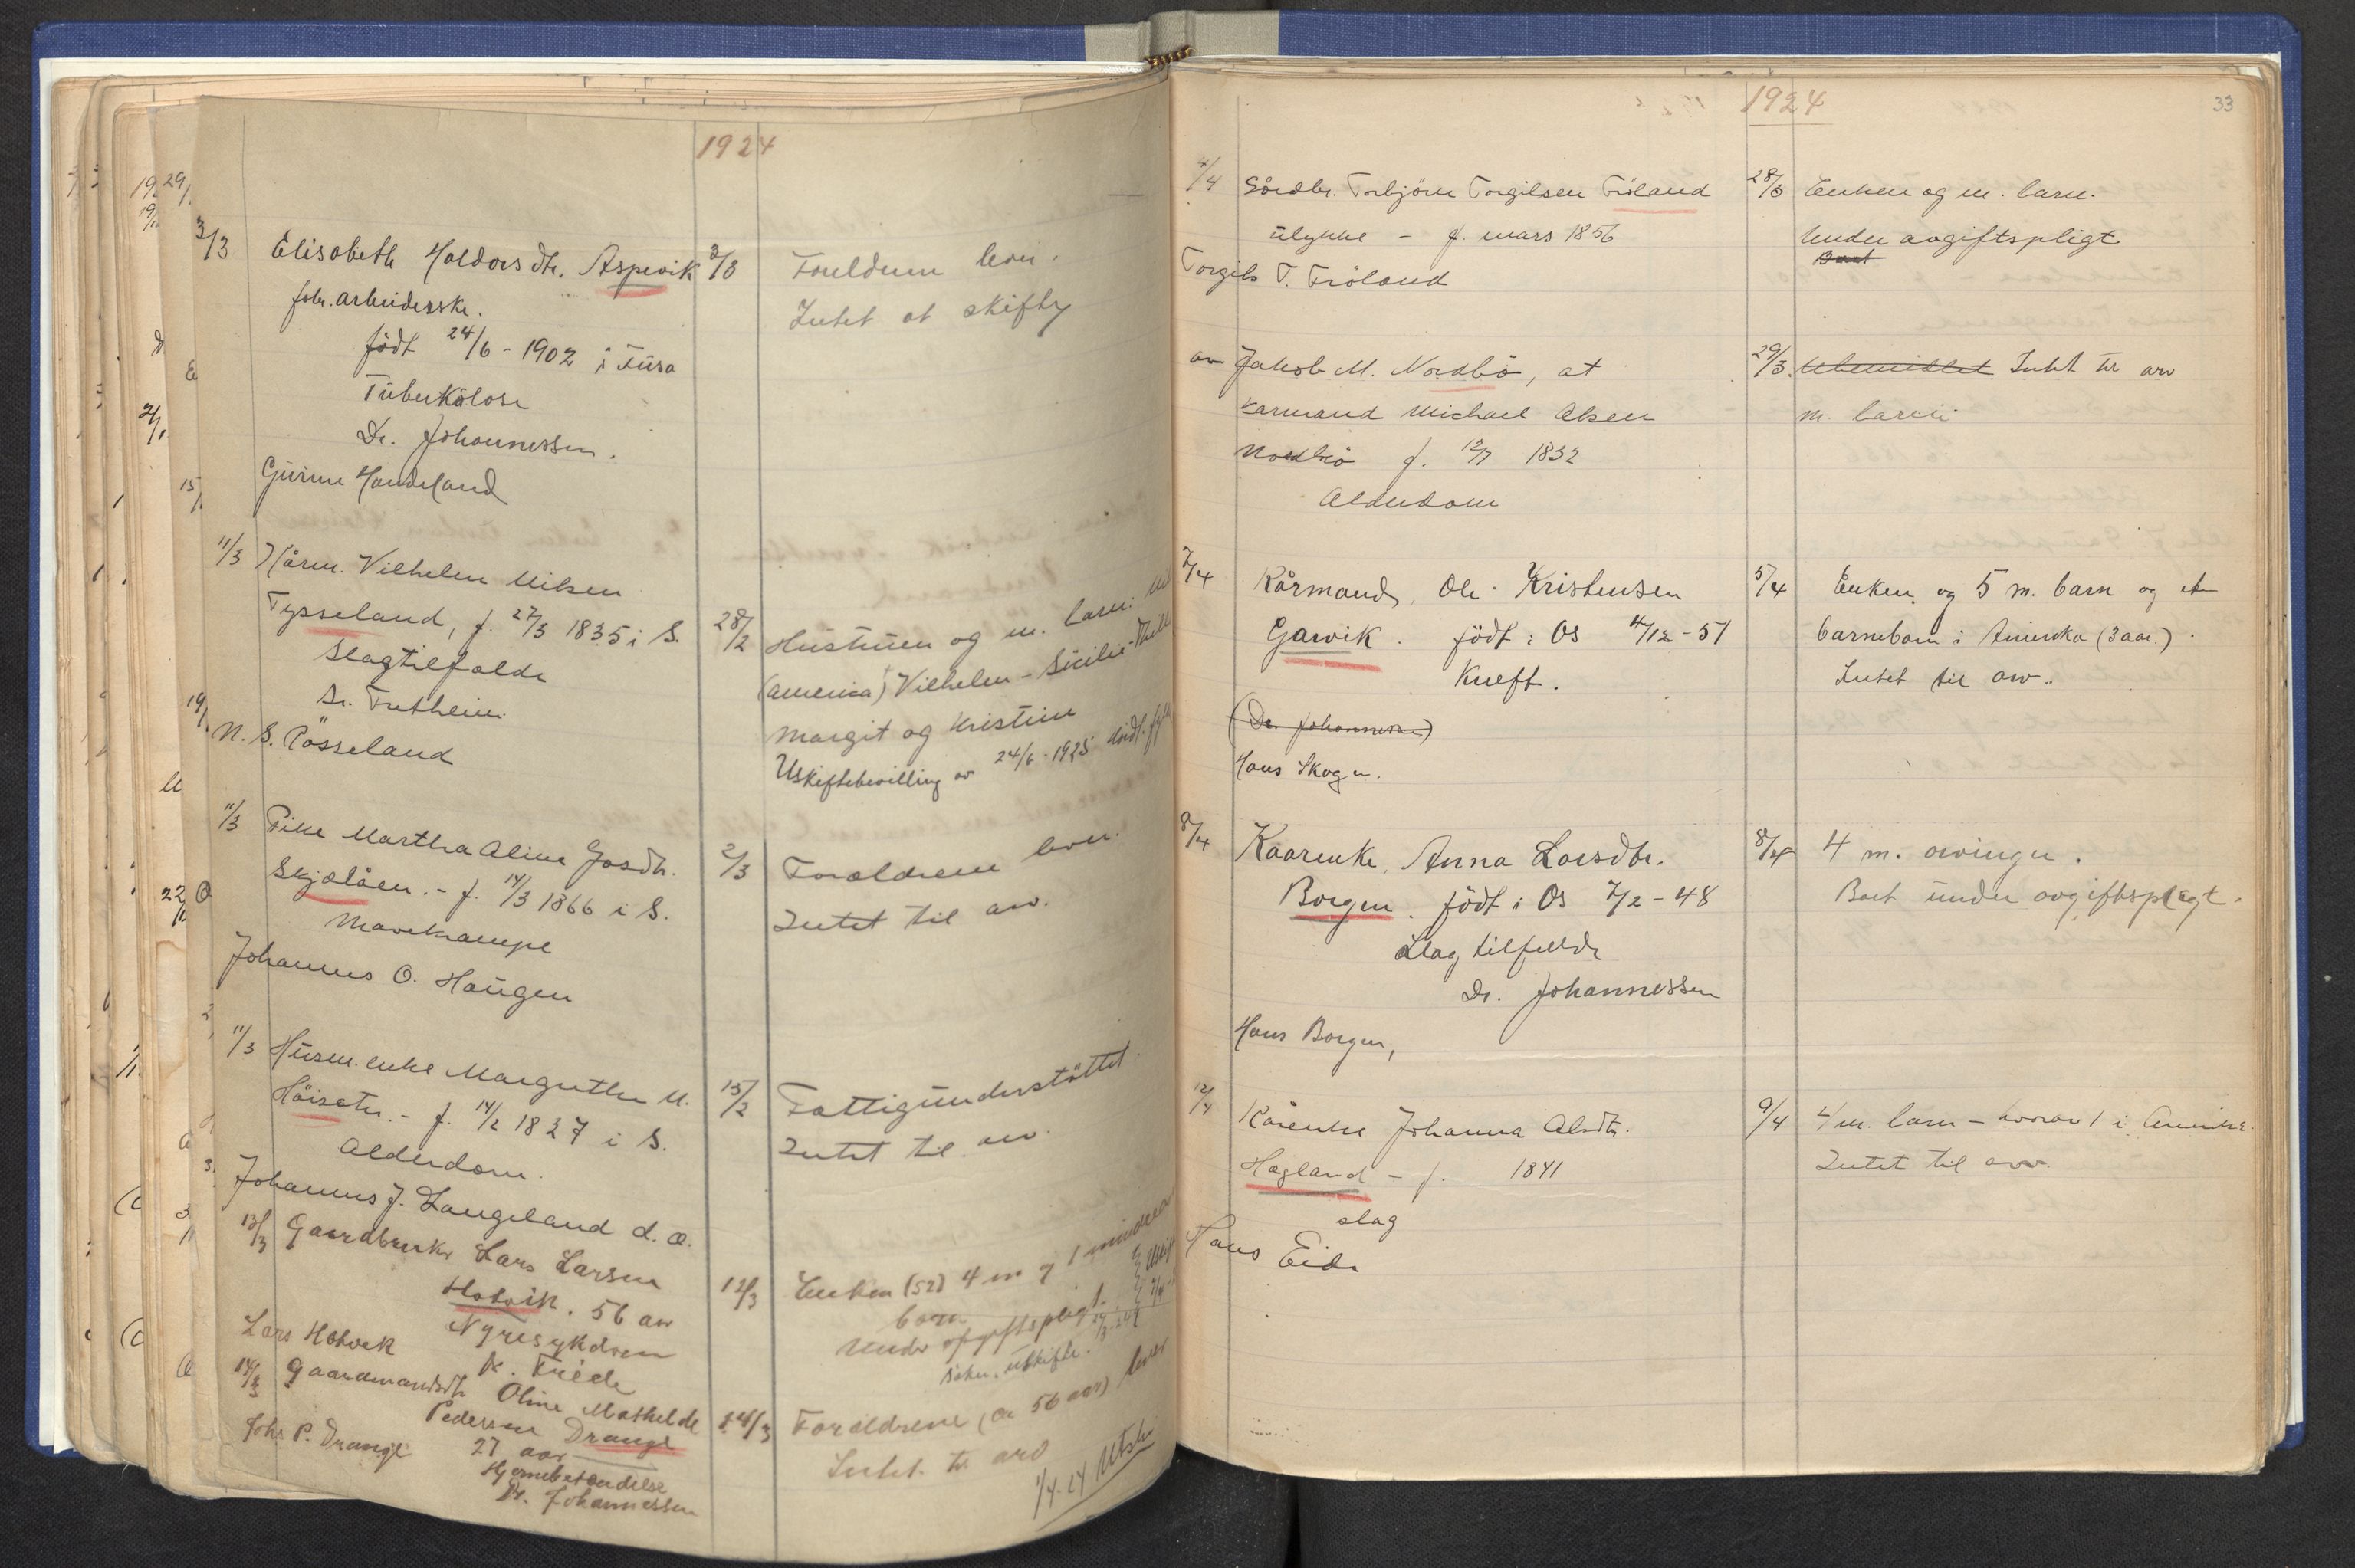 1924
3/3 Elisabeth Haldorsdtr. Aspevik 3/3 Foreldrene lever.
fabr. arbeiderske. Intet at skifte
født 24/6 - 1902 i Fusa
Tuberkulose
Dr. Johannessen.
Gurine Handeland
11/3 Kårm. Vilhelm Nilsen
Tysseland, f. 27/3 1835 i S. 28/2 Hustruen og m. barn:
Slagtilfælde (America) Vilhelm - Sicilie -
Dr. Tretheim. Margit og Kristine
N. S. Røsseland Uskiftebevilling av 24/6 - 1925
11/3 Pike Martha Aline Josdtr. 2/3 Forældrene lever.
Skjelåen. - f. 14/3 1866 i S. Intet til arv.
Mavekrampe
Johannes O. Haugen
11/3 Husm. enke Margrethe N. 15/2 Fattigunderstøttet.
Høisæter. - f. 14/2 1827 i S. Intet til arv.
Alderdom.
Johannes J. Langeland d. æ.
13/3 Gaardbruker Lars Larsen 12/3 Enken (52) 4 m og 1 mindreaar
Hatvik. 56 aar barn
Nyresykdom Under afgiftspligt
Lars Hatvik Dr. Friele søkn. uskifte.
14/3 Gaardmandsdtr Oline Mathilde 14/3 Forældrene (ca 56 aar) lever
Pedersen Drange Intet t. arv
Johs P. Drange 27 aar 1/4-24 Utsk.
Hjernebetændelse
Dr. Johannessen
1924 33
4/4 Gårdbr. Torbjörn Torgilsen Fröland 28/3 Enken og m. barn.
ulykke - f. mars 1856 Under avgiftspligt
Torgils T. Fröland Boet
av Jakob M. Nordbö, at 29/3. Ubemidlet Intet til arv
Karmand Michael Olsen m. barn
Nordbö f. 12/7 1832
Alderdom
7/4 Kårmand Ole Kristensen 5/4 Enken og 5 m. barn og et
Garvik. født i Os 4/12 - 51 barnebarn i Amerika (3 aar.).
Kreft. Intet til arv.
(Dr. Johannessen)
Hans Skogen.
8/4 Kaarenke. Anna Larsdtr. 8/4 4 m. arvinger.
Borgen. født i Os 7/2 - 48 Boet under avgiftsplegt.
Slagtilfelde
Dr. Johannessen
Hans Borgen,
12/4 Kårenke Johanna Olsdtr. 9/4 4 m. barn - hvorav 1 i Amerika.
Hagland - f. 1841 Intet til arv.
slag
Hans Eide